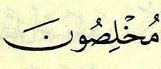 مُخْلِصُونَ